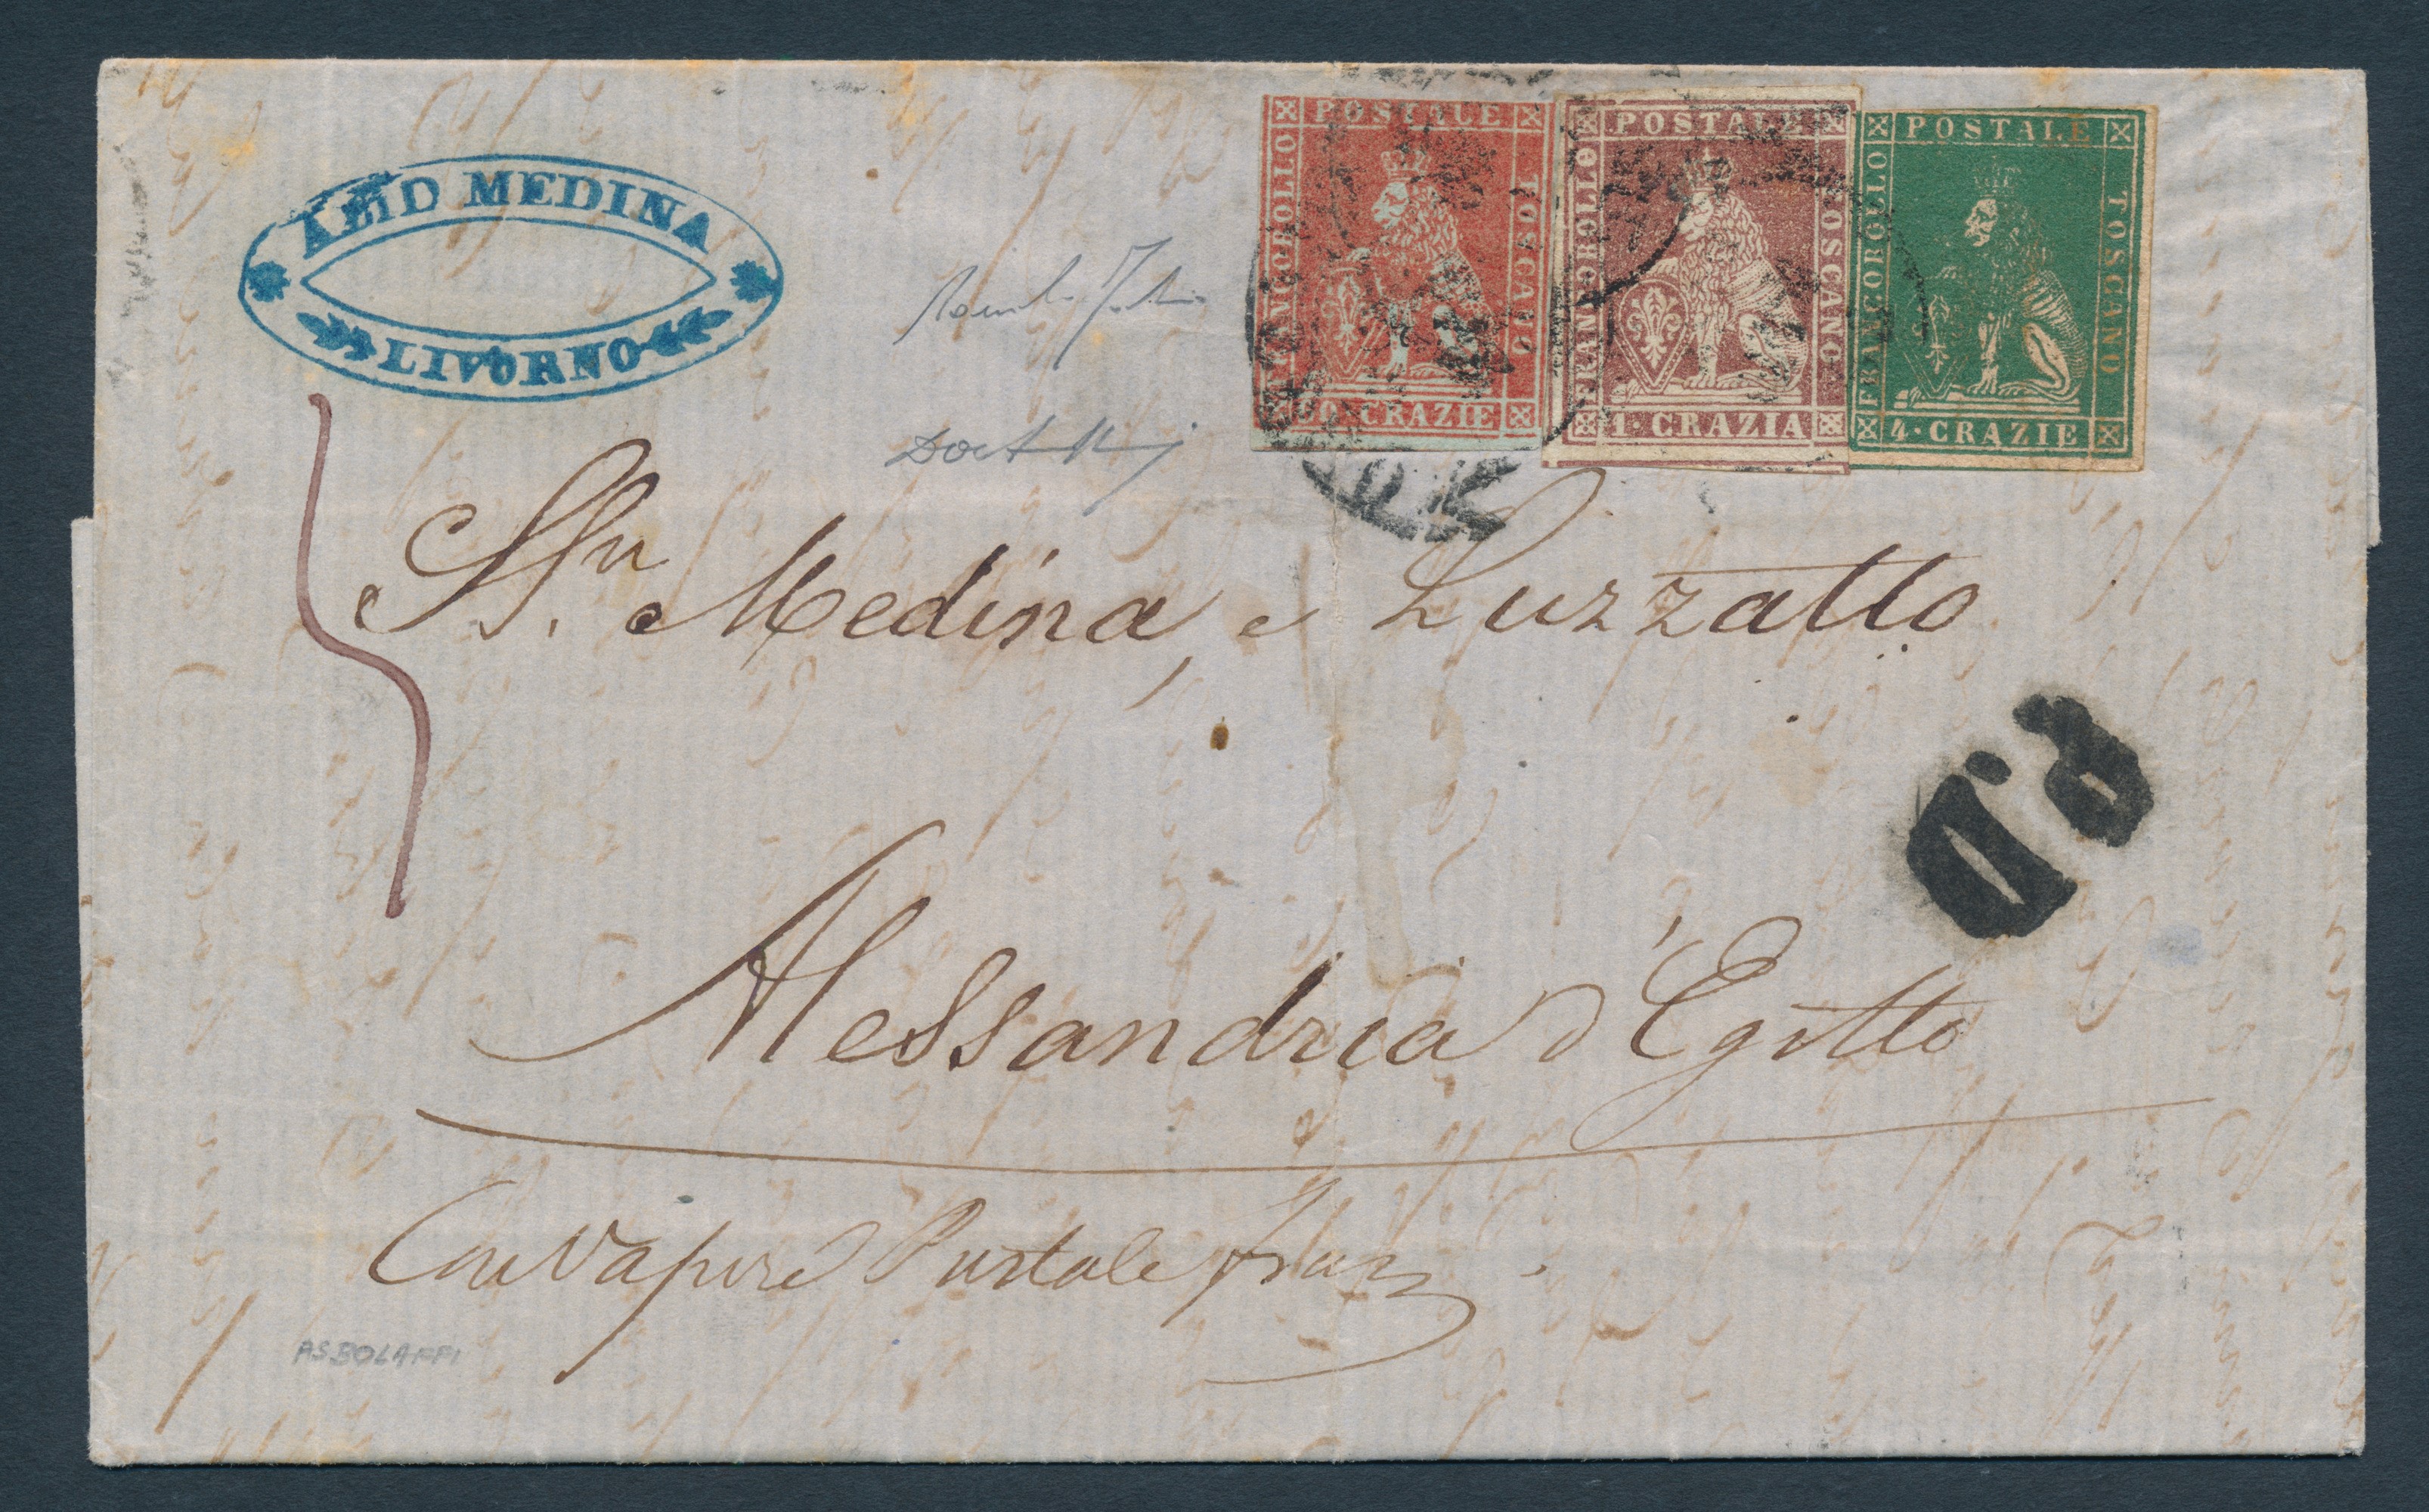 MEDINA
LIVORNO
POSTALE
FRANCOBOLLO
TOSCANO
CRAZIE
POSTALE
FRANCOBOLLO
TOSCANO
1·CRAZIA
POSTALE
FRANCOBOLLO
TOSCANO
4·CRAZIE
Medina, e Luzzatto
P.D.
Alessandria d'Egitto
Con Vapore Postale Franz
ASBOLAFFI